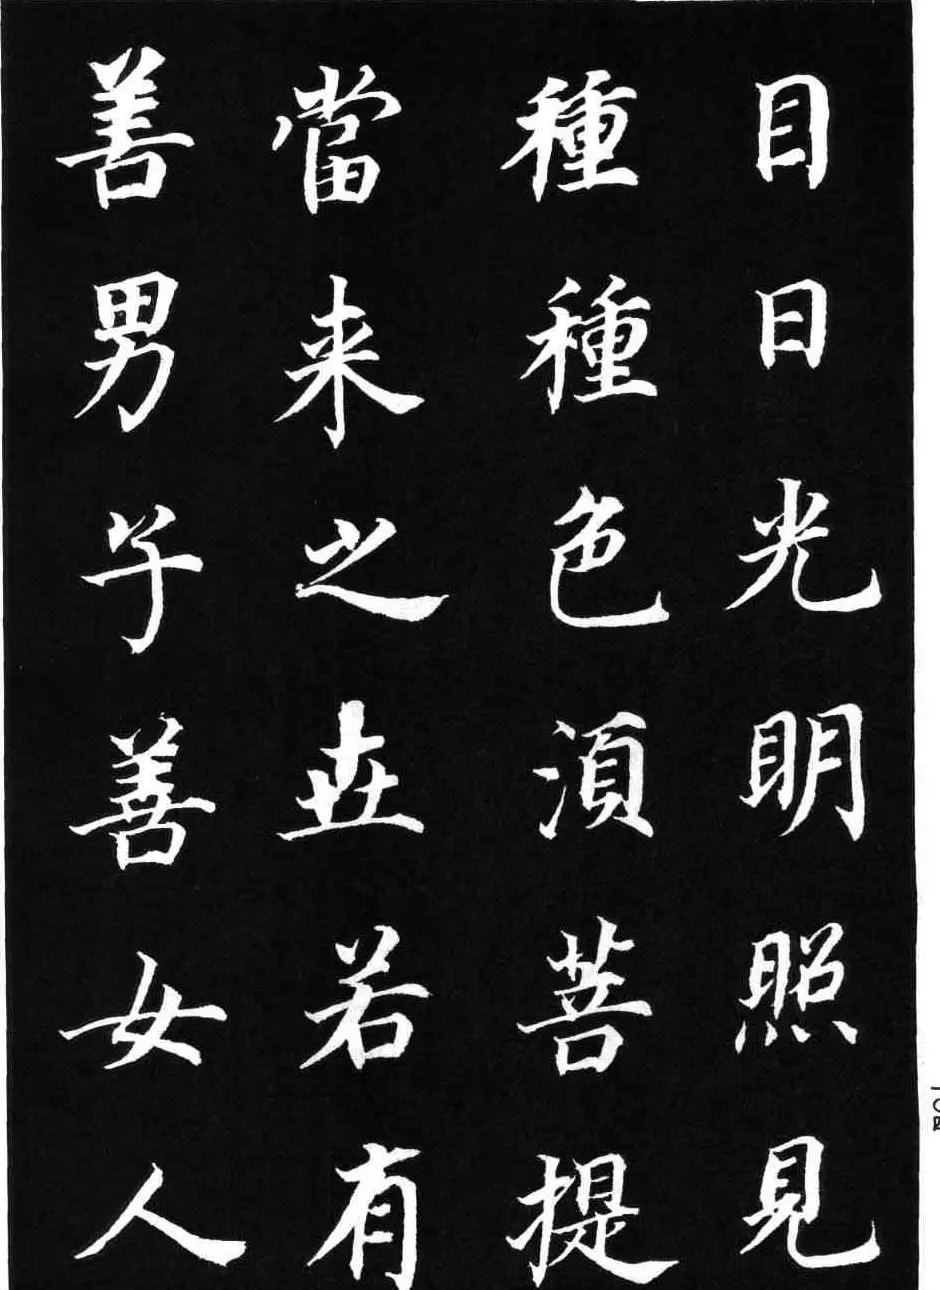 目日光明照見
種種色湏菩提
當来之世若有
善男子善女人